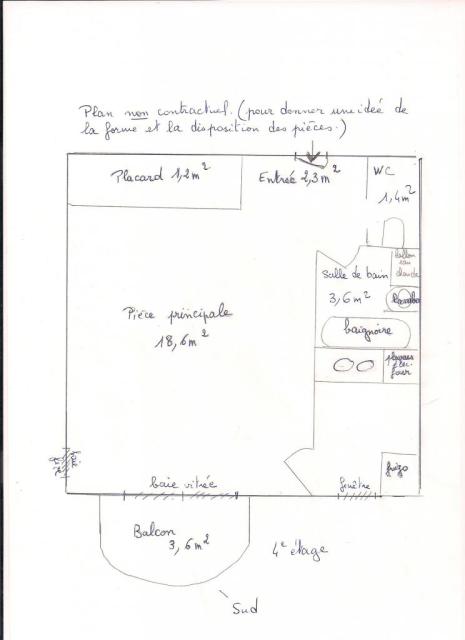 Plan non contractuel. (pour donner une idée de
la forme et la disposition des pièces.)
Placard 1,2 m²
Entrée 2,3 m²
WC
1,4 m²
ballon
eau
chaude
Salle de bain
3,6 m²
lavabo
baignoire
Pièce principale
18,6 m²
plaques
élec.
four
frigo
baie vitrée
fenêtre
Balcon
3,6 m²
4e étage
Sud